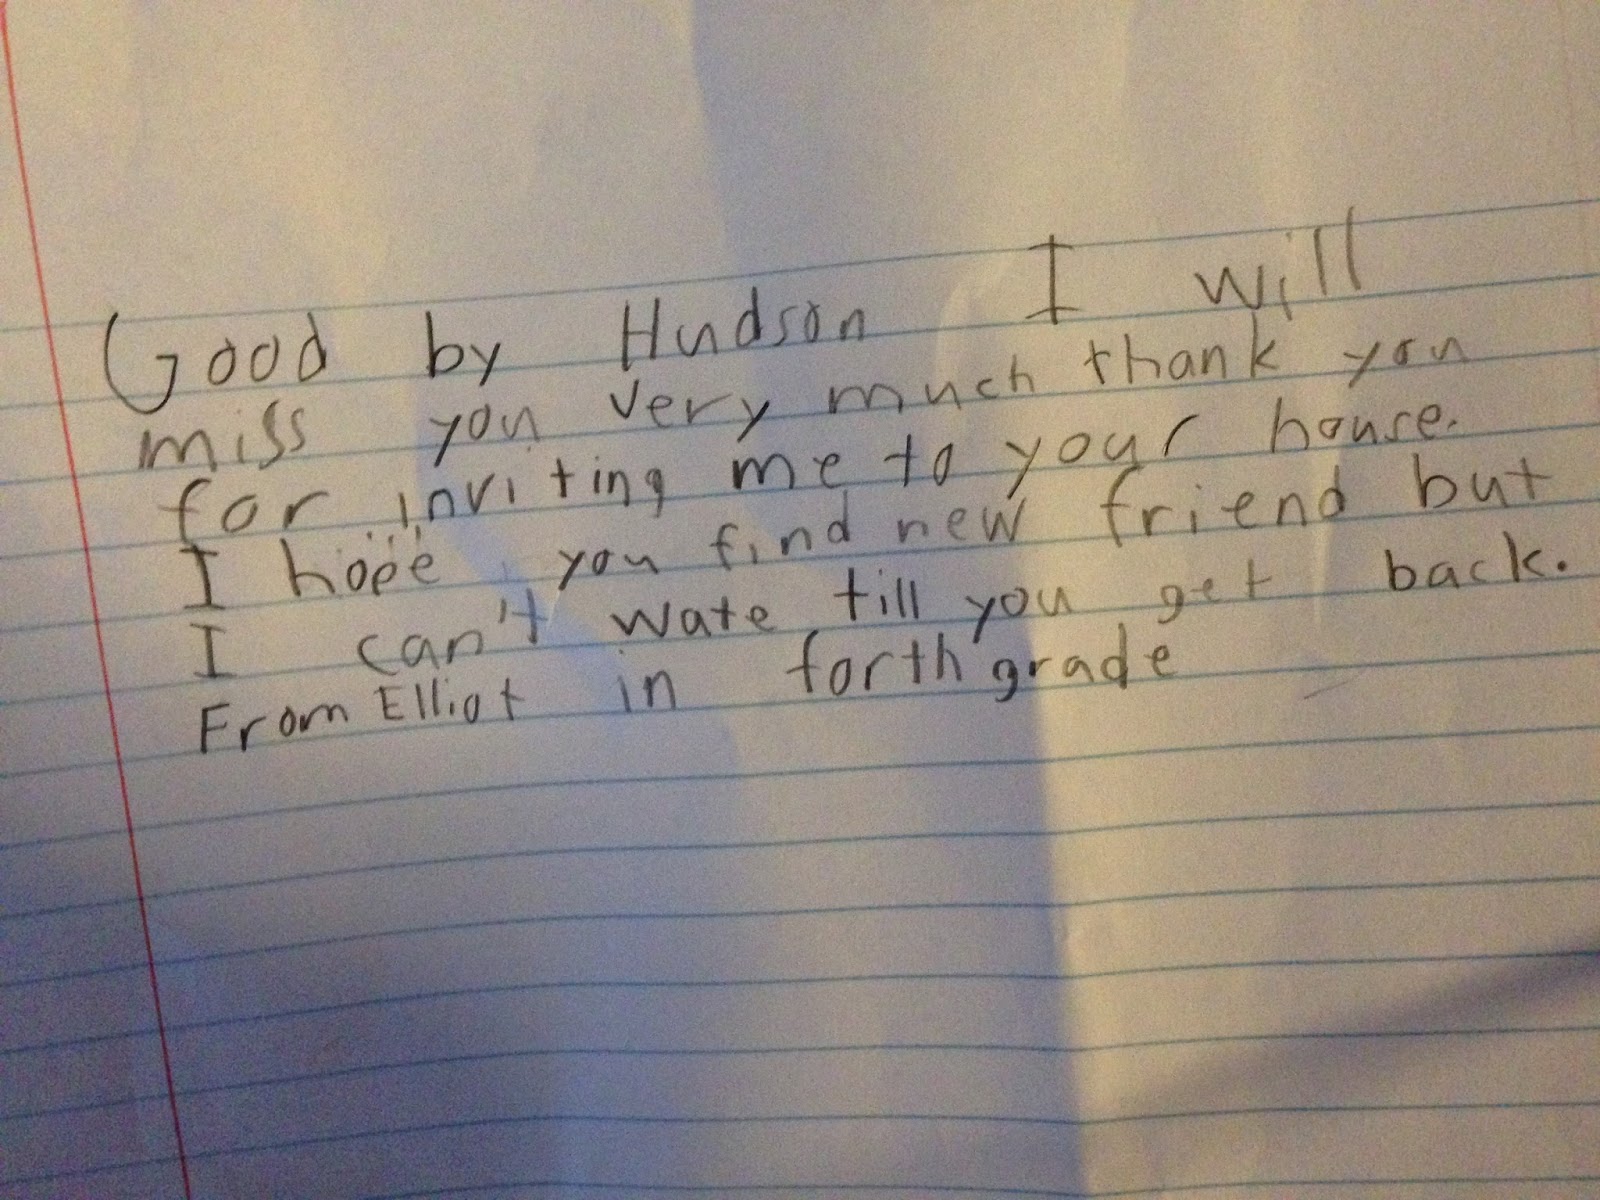 Good by Hudson I will
miss you very much thank you
for inviting me to your house.
I hope you find new friend but
I can't wate till you get back.
From Elliot in forth grade